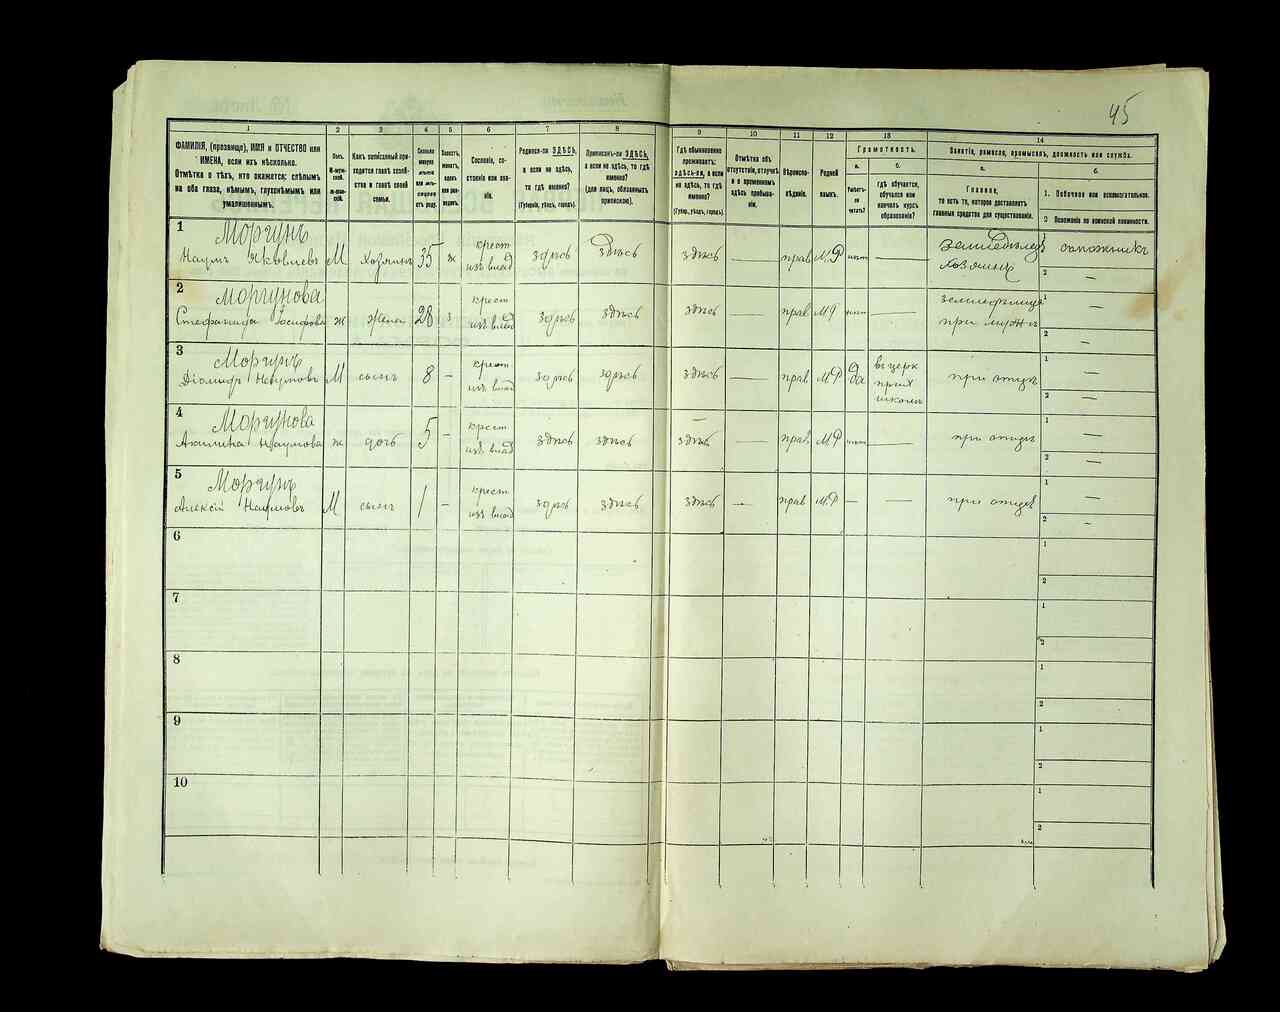 45
1
2
3
4
5
6
7
8
9
10
11
12
13
14
ФАМИЛІЯ, (прозвище), ИМЯ и ОТЧЕСТВО или
ИМЕНА, если ихъ нѣсколько.
Отмѣтка о тѣхъ, кто окажется: слѣпымъ
на оба глаза, нѣмымъ, глухонѣмымъ или
умалишеннымъ.
Полъ.
М-мужской.
Ж-женскій.
Какъ записанный при-
ходится главѣ хозяй-
ства и главѣ своей
семьи.
Сколько
минуло
лѣтъ
отъ роду.
Холостъ,
женатъ,
вдовъ
или раз-
веденъ.
Сословіе, со-
стояніе или зва-
ніе.
Родился-ли ЗДѢСЬ,
а если не здѣсь,
то гдѣ именно?
(Губернія, уѣздъ, городъ).
Приписанъ-ли ЗДѢСЬ,
а если не здѣсь, то гдѣ
именно?
(для лицъ, обязанныхъ
припискою).
Гдѣ обыкновенно
проживаетъ:
здѣсь-ли, а если
не здѣсь, то гдѣ
именно?
(Губер., уѣздъ, городъ).
Отмѣтка объ
отсутствіи, отлучкѣ
и о временномъ
здѣсь пребыва-
ніи.
Вѣроиспо-
вѣданіе.
Родной
языкъ.
Грамотность.
а.
Умѣетъ-
ли
читать?
б.
гдѣ обучается,
обучался или
кончилъ курсъ
образованія?
Занятіе, ремесло, промыселъ, должность или служба.
а.
Главное,
то есть то, которое доставляетъ
главныя средства для существованія.
б.
1. Побочное или вспомогательное.
2 Положеніе по воинской повинности.
1
Моргунъ
Наумъ Яковлевъ М Хозяинъ 35 ж крест
изъ влад здѣсь здѣсь здѣсь — прав МР нѣт — земледѣлец
хозяинъ 1 сапожникъ
2 —
2
Моргунова
Стефанида Іосифова ж жена 28 з крест
изъ влад здѣсь здѣсь здѣсь — прав МР нѣт — земледѣлица
при мужѣ 1 —
2 —
3
Моргунъ
Наумовъ М сынъ 8 — крест
изъ влад здѣсь здѣсь здѣсь — прав МР да въ церк
прих
школѣ при отцѣ 1 —
2 —
4
Моргунова
Акилина Наумова ж дочь 5 — крест
изъ влад здѣсь здѣсь здѣсь — прав МР нѣт — при отцѣ 1 —
2 —
5
Моргунъ
Алексій Наумовъ М сынъ 1 — крест
изъ влад здѣсь здѣсь здѣсь — прав МР — — при отцѣ 1 —
2 —
6
1
2
7
1
2
8
1
2
9
1
2
10
1
2